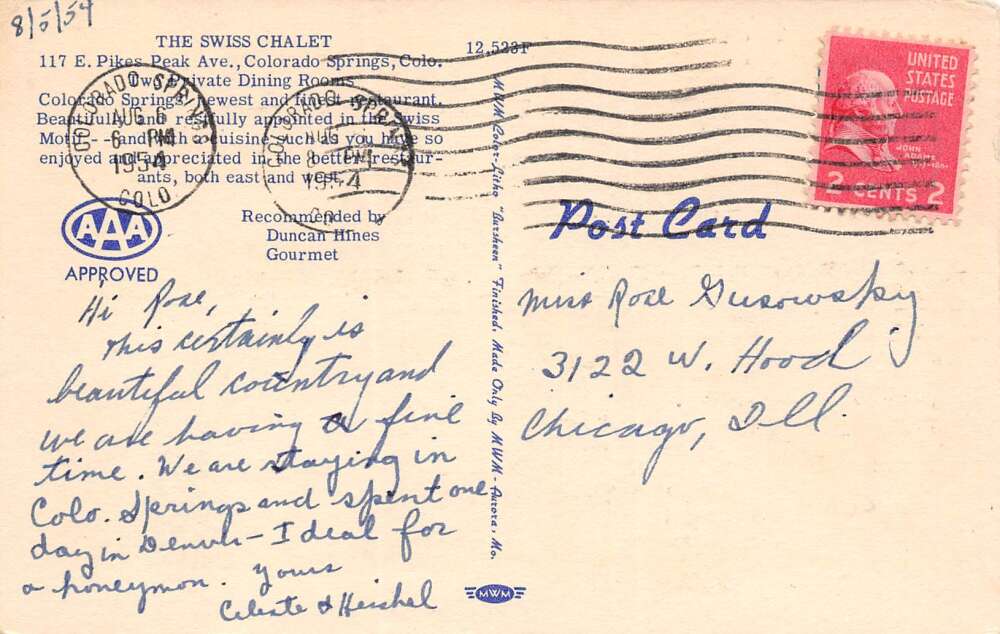 8/5/54
THE SWISS CHALET
117 E. Pikes Peak Ave., Colorado Springs, Colo.
Two Private Dining Rooms
Colorado Springs' newest and finest restaurant.
Beautifully and restfully appointed in the Swiss
Motif -- and with a cuisine such as you have so
enjoyed and appreciated in the better restaur-
ants, both east and west.
12,523F
COLORADO SPRINGS
AUG 6
6 PM
1954
COLO.
COLORADO SPRINGS
AUG
PM
1954
AAA
APPROVED
Recommended by
Duncan Hines
Gourmet
UNITED
STATES
POSTAGE
JOHN
ADAMS
2 CENTS 2
Post Card
MWM Color-Litho "Dursheen" Finished. Made Only By MWM-Aurora, Mo.
Hi Rose,
This certainly is
beautiful country and
we are having a fine
time. We are staying in
Colo. Springs and spent one
day in Denver - Ideal for
a honeymon. Yours
Celeste & Hershel
Miss Rose Gusowsky
3122 W. Hood
Chicago, Ill.
MWM